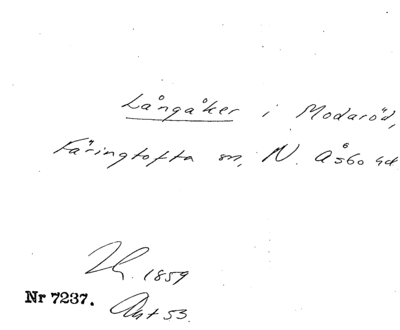 Långåker i Modaröd,
Färingtofta sn, N. Åsbo hd.
Lh. 1859
Nr 7237. Akt 53.